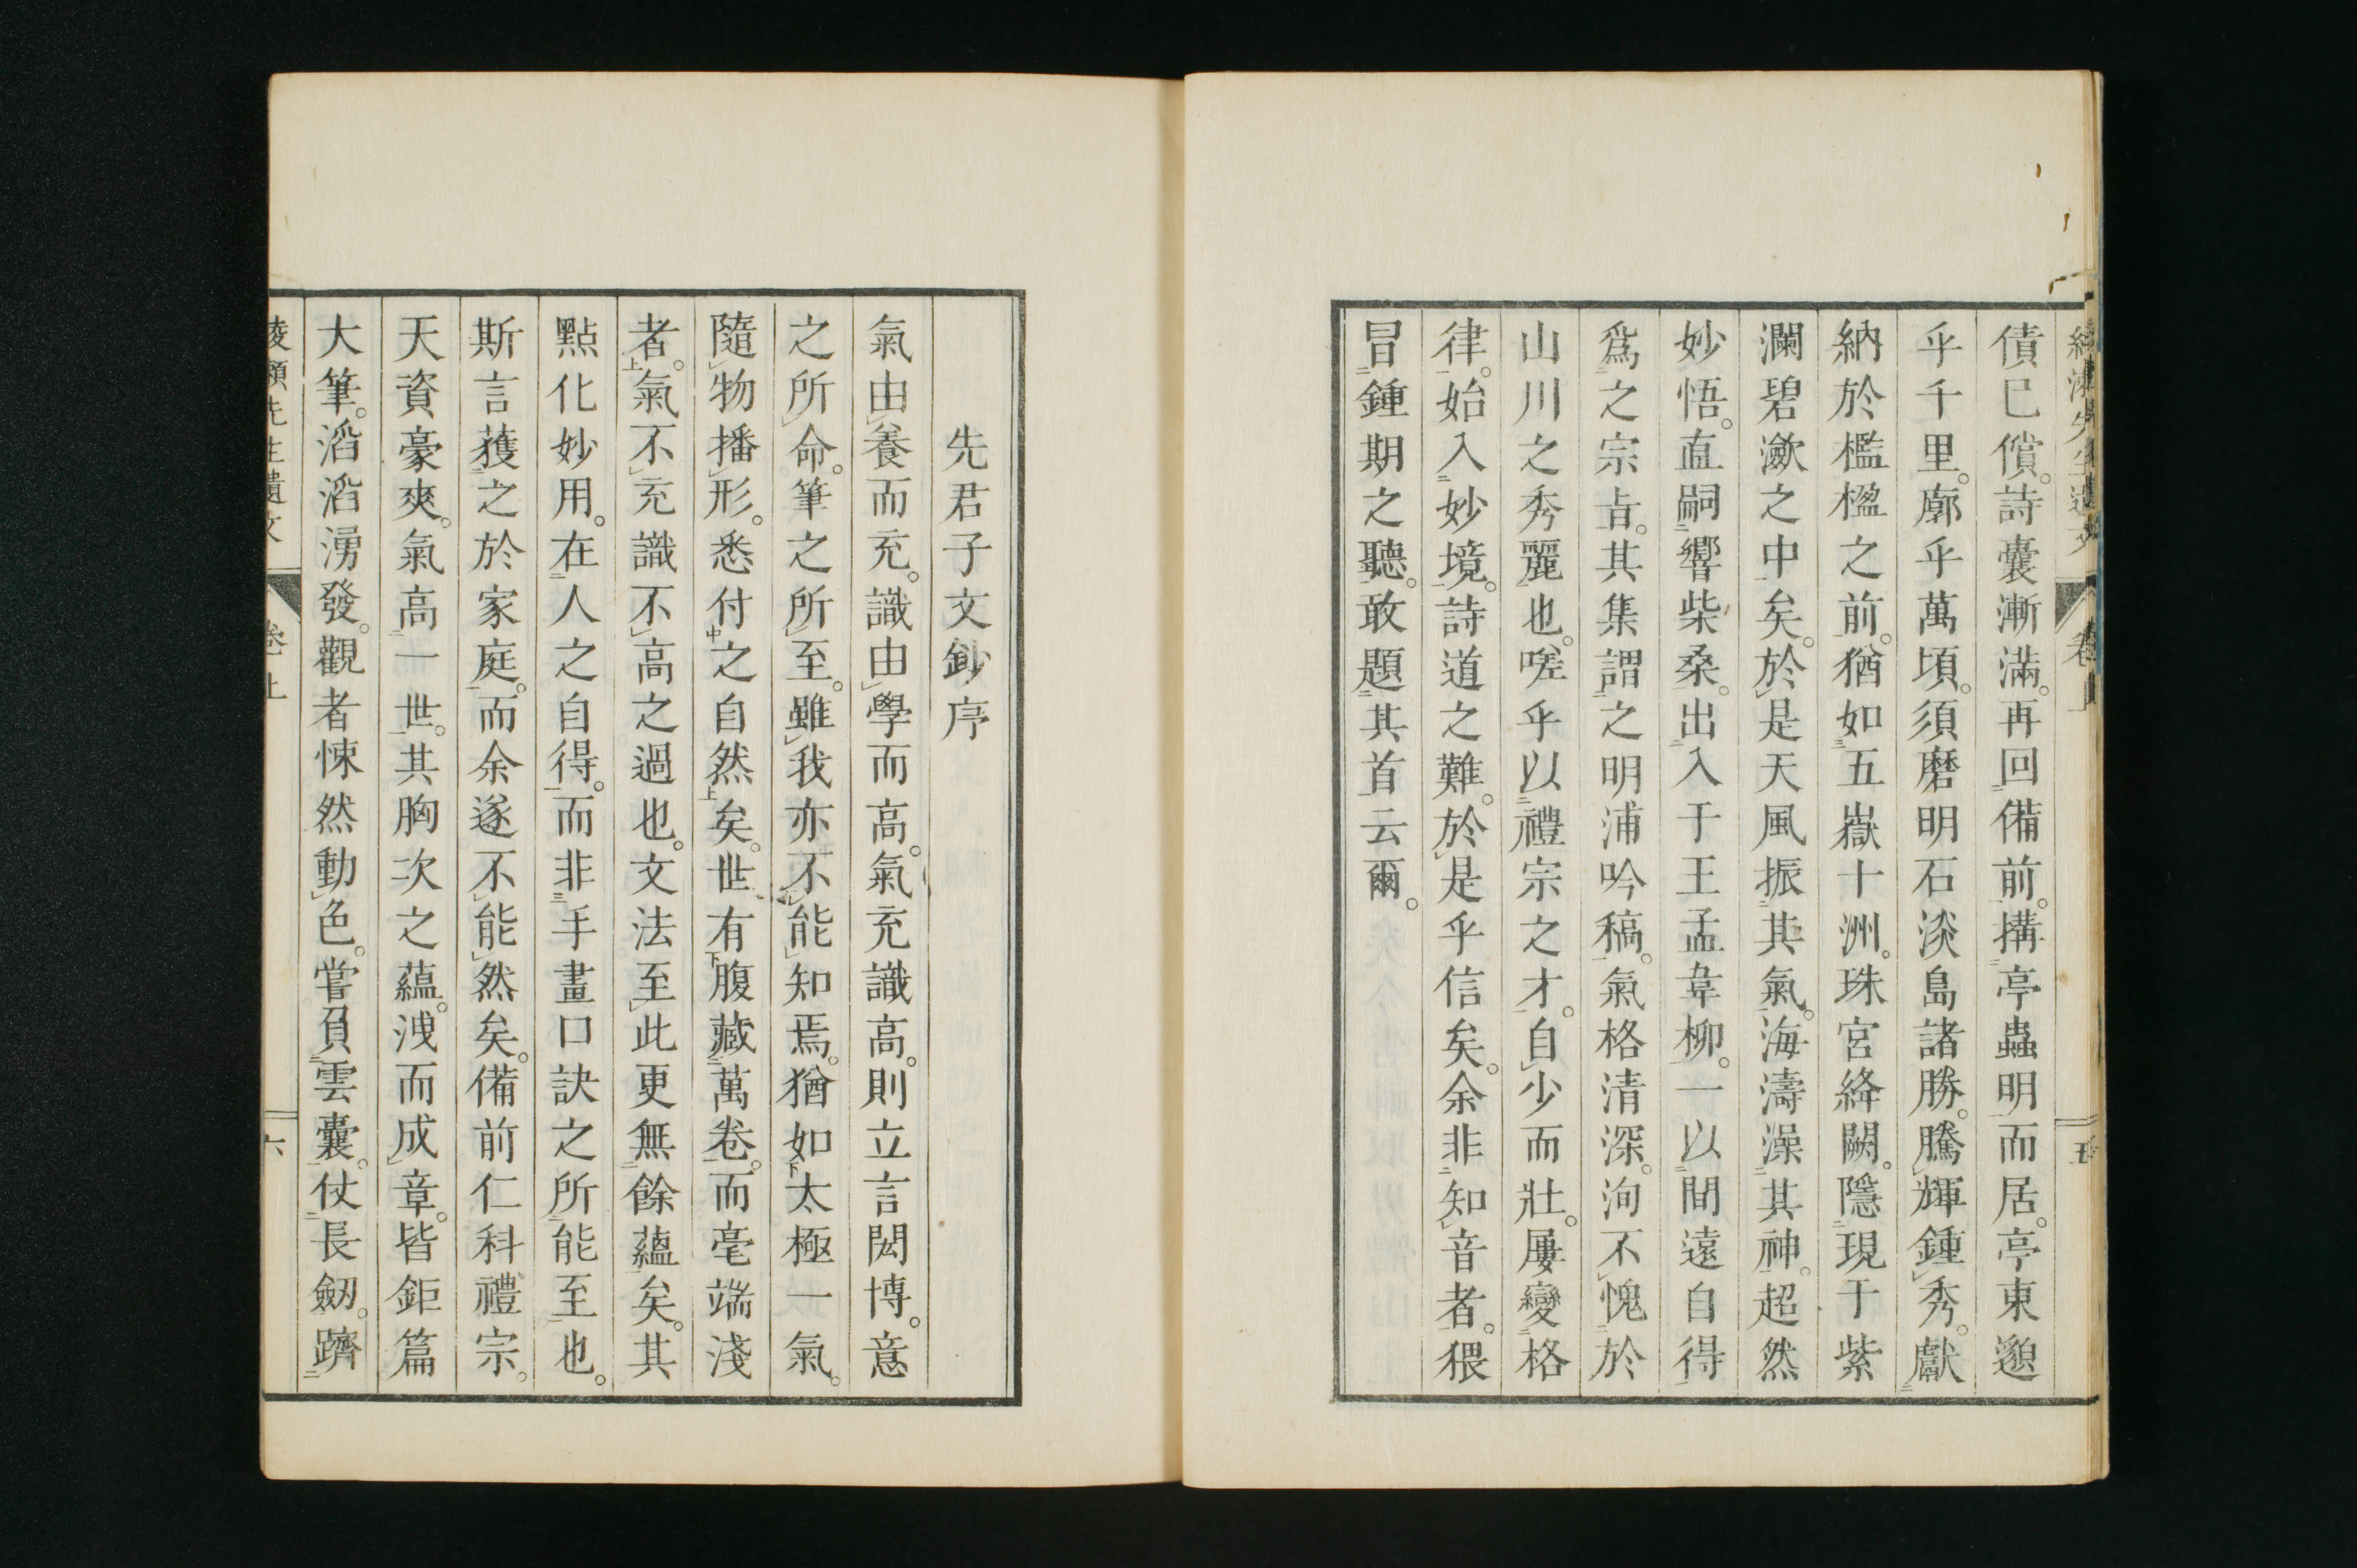 債已償。詩囊漸滿。再回備前。搆亭蟲明而居。亭東邈
乎千里。廓乎萬頃。須磨明石淡島諸勝。騰輝鍾秀。獻
納於檻楹之前。猶如五嶽十洲。珠宮絳闕。隱現于紫
瀾碧瀲之中矣。於是天風振其氣。海濤澡其神。超然
妙悟。直嗣響柴桑。出入于王孟韋柳。一以間遠自得
爲之宗旨。其集謂之明浦吟稿。氣格清深。洵不愧於
山川之秀麗也。嗟乎以禮宗之才。自少而壯。屢變格
律。始入妙境。詩道之難。於是乎信矣。余非知音者。猥
冒鍾期之聽。敢題其首云爾。
先君子文鈔序
氣由養而充。識由學而高。氣充識高。則立言閎博。意
之所命。筆之所至。雖我亦不能知焉。猶如太極一氣。
隨物播形。悉付之自然矣。世有腹藏萬卷。而毫端淺
者。氣不充識不高之過也。文法至此更無餘蘊矣。其
點化妙用。在人之自得。而非手畫口訣之所能至也。
斯言獲之於家庭。而余遂不能然矣。備前仁科禮宗。
天資豪爽。氣高一世。其胸次之蘊。洩而成章。皆鉅篇
大筆。滔滔湧發。觀者悚然動色。嘗負雲囊。仗長劒。躋
綾瀬先生遺文 卷上 六